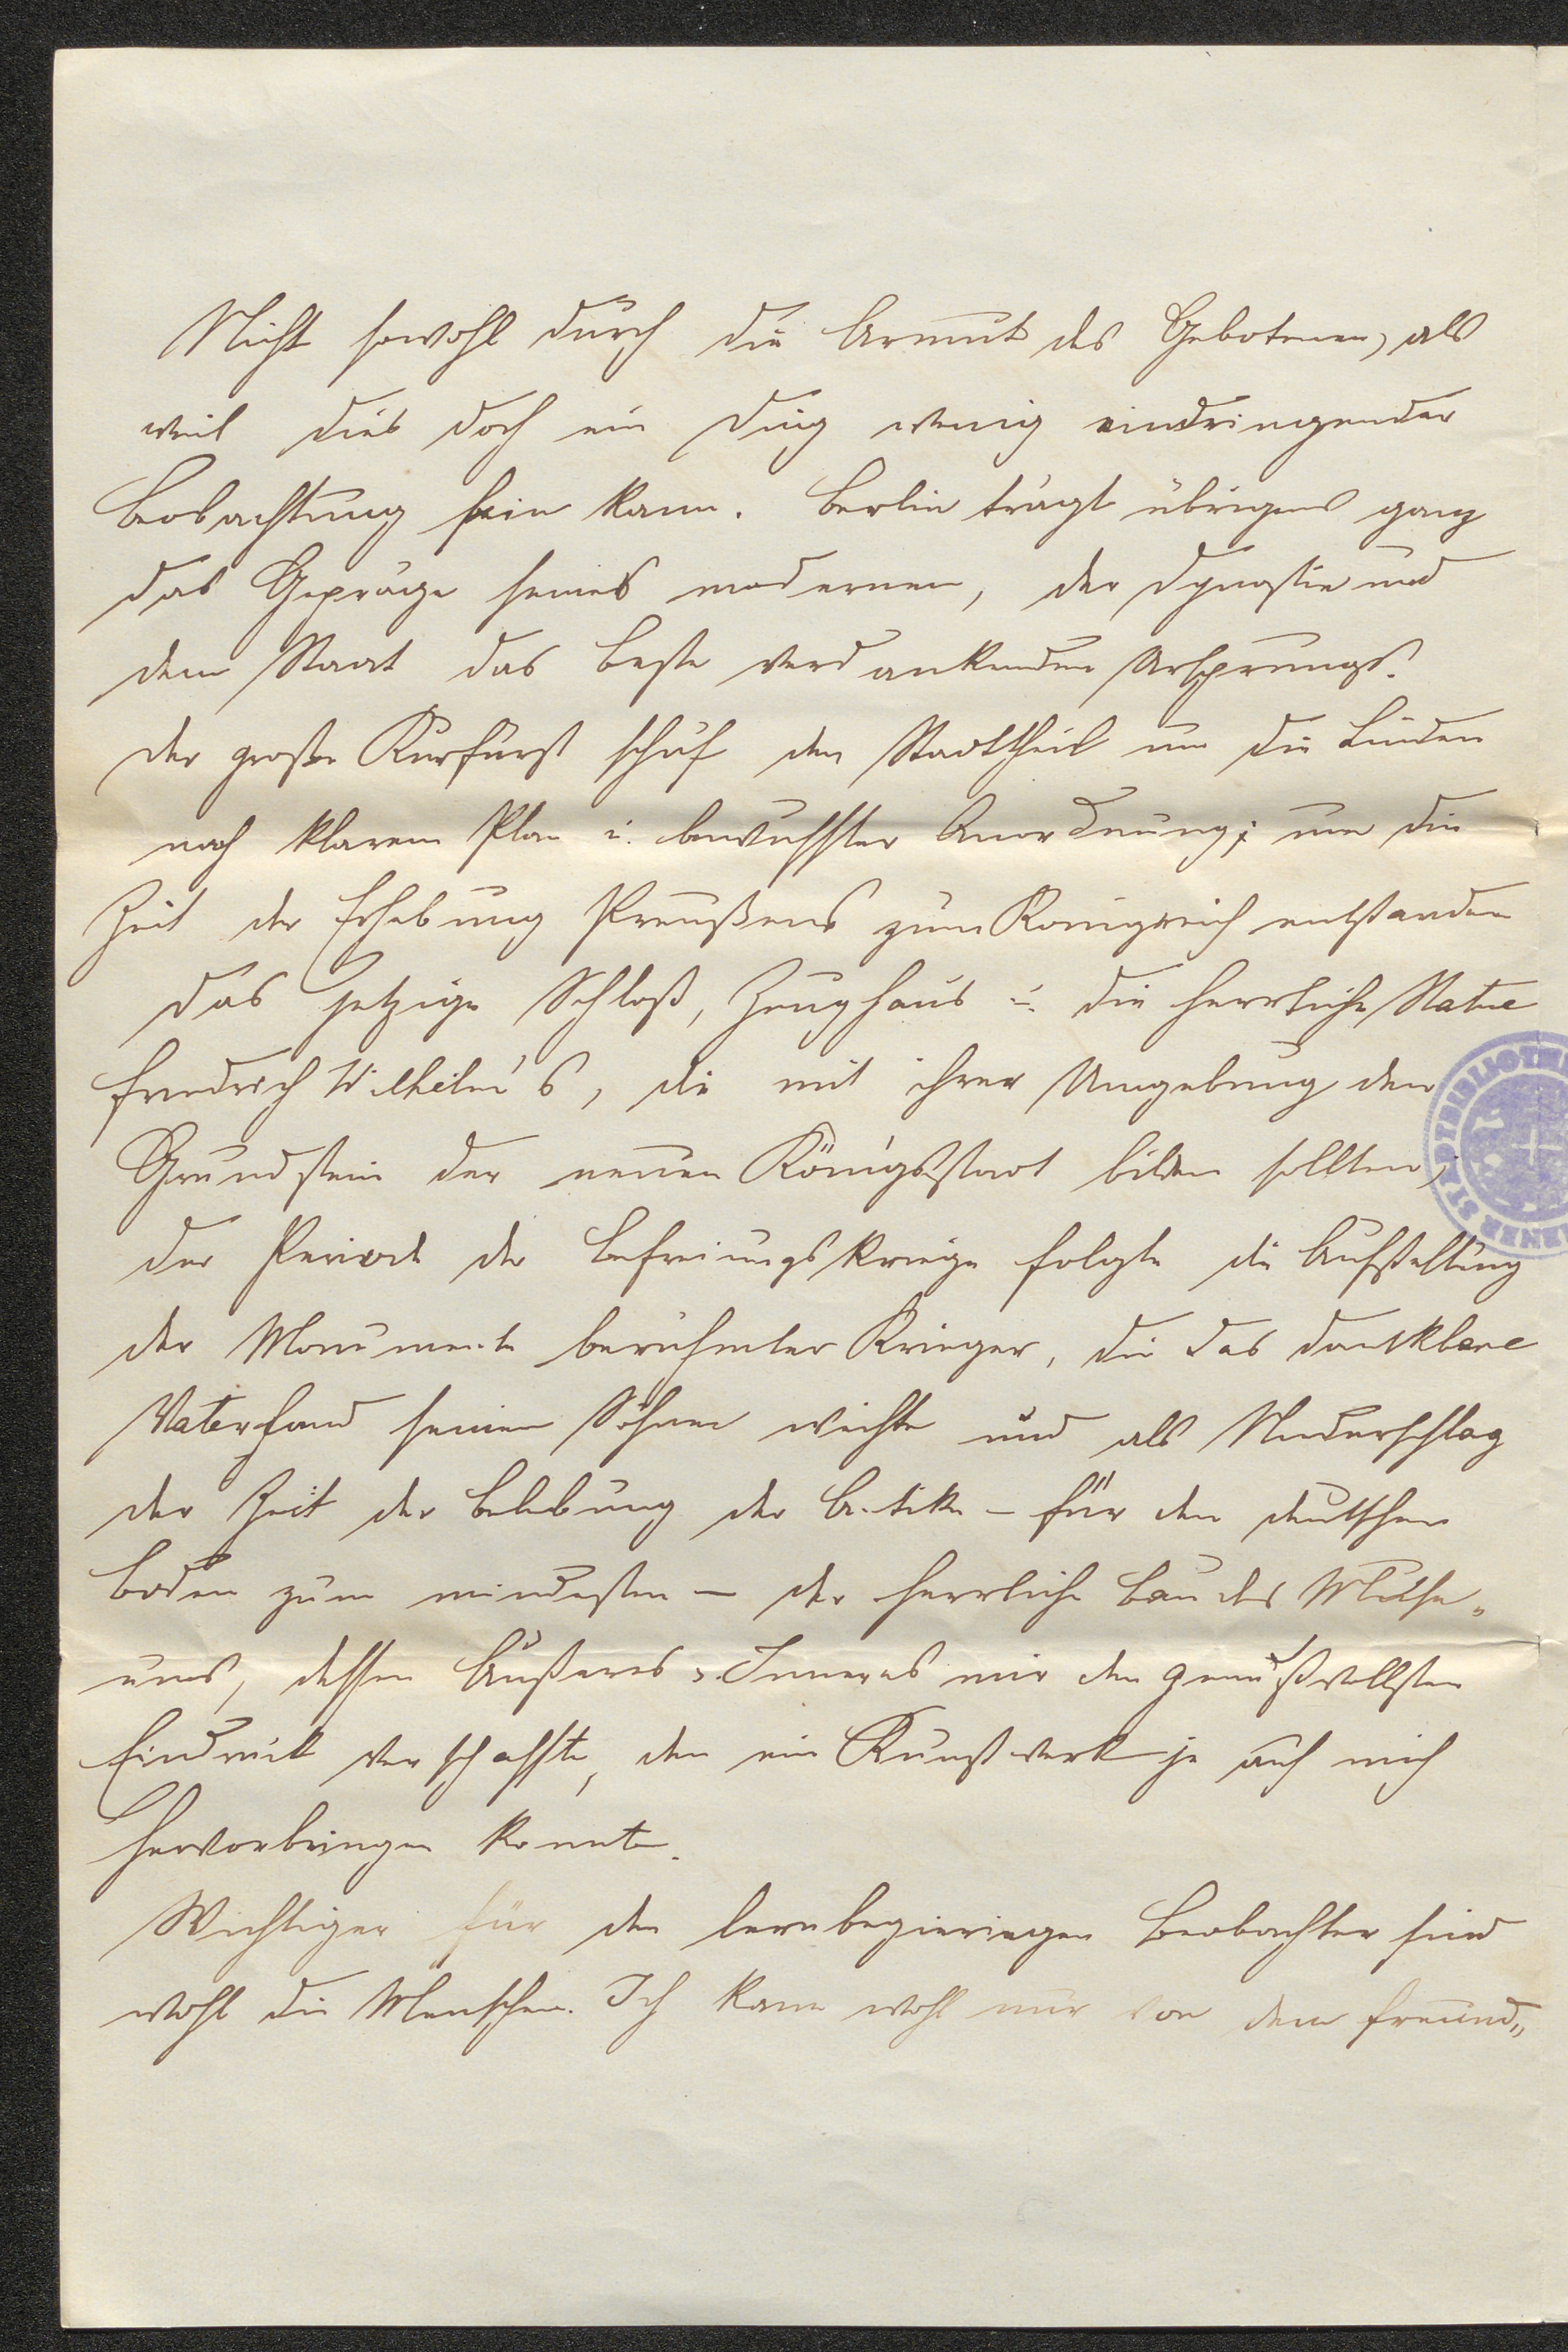 Nicht sowohl durch die Armut des Gebotenen, als
weil dies doch ein Ding wenig eindringender
Beobachtung sein kann. Berlin trägt übrigens ganz
das Gepräge seines modernen, der Dynastie und
dem Staat das Beste verdankenden Ursprungs.
Der große Kurfürst schuf den Stadttheil um die Linden
nach klarem Plan u. bewusster Anordnung; um die
Zeit der Erhebung Preußens zum Königreich entstanden
das jetzige Schloß, Zeughaus u. die herrliche Statue
Friedrich Wilhelm's, die mit ihrer Umgebung den
Grundstein der neuen Königsstadt bilden sollten;
der Periode der Befreiungskriege folgte die Aufstellung
der Monumente berühmter Krieger, die das dankbare
Vaterland seinen Söhnen weihte und als Niederschlag
der Zeit der Belebung der Antike – für den deutschen
Boden zum mindesten – der herrliche Bau des Muse„
ums, dessen Äußeres u. Inneres mir den genußvollsten
Eindruck verschaffte, den ein Kunstwerk je auf mich
hervorbringen konnte.
Wichtiger für den lernbegierigen Beobachter sind
wohl die Menschen. Ich kann wohl nur von dem freund„